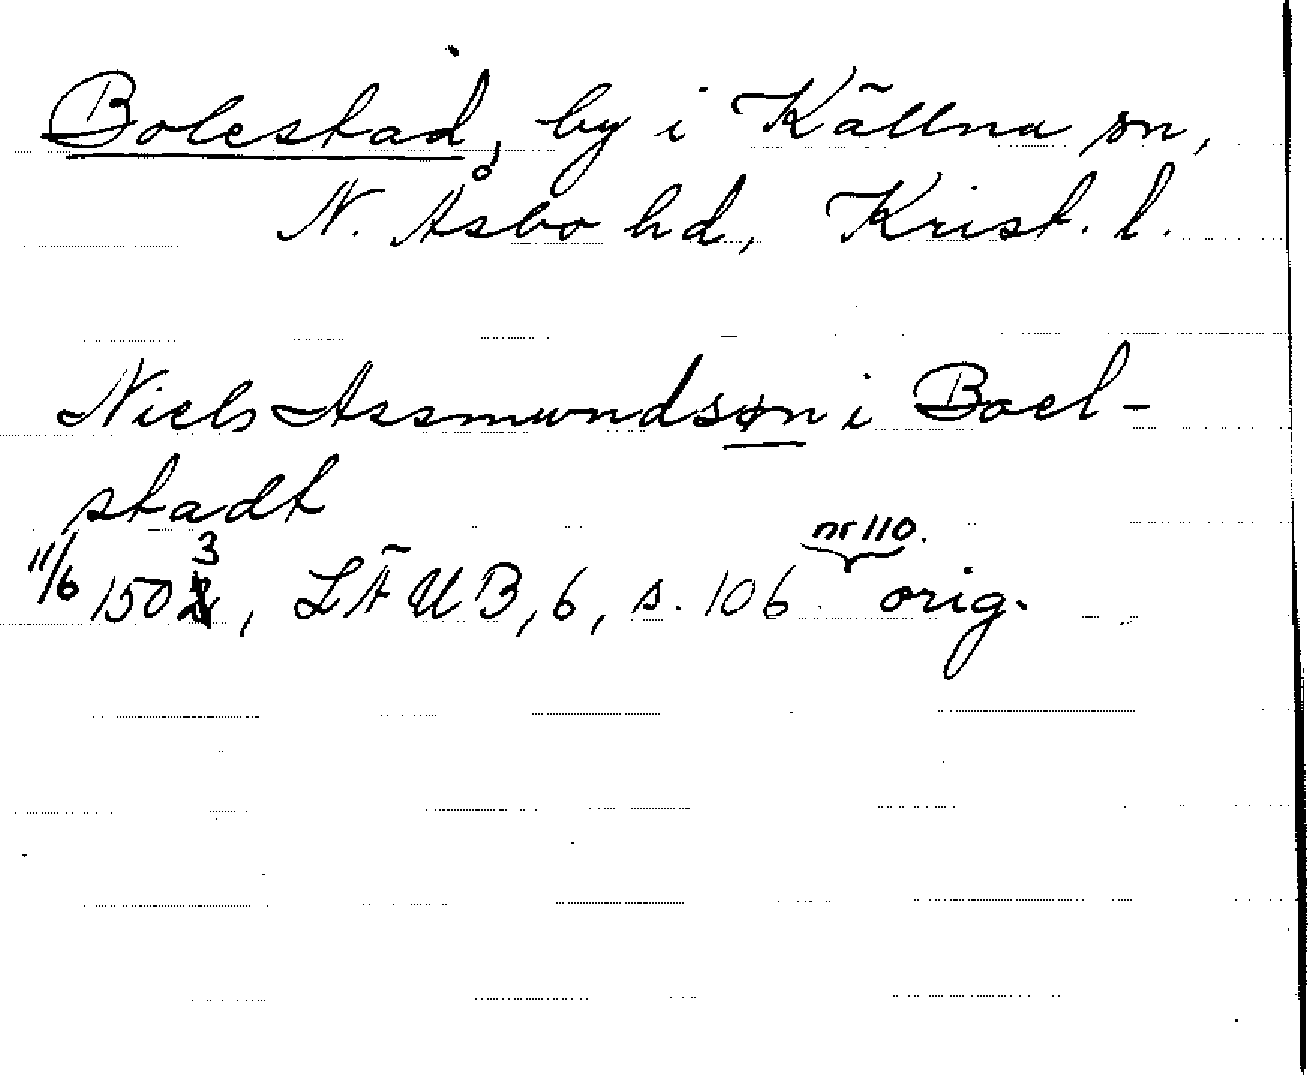 Bolestad, by i Källna sn,
N. Åsbo hd, Krist. l.
Niels Assmundsøn i Boel-
stadt
nr 110.
11/6 1503, LÄUB, 6, s. 106. orig.